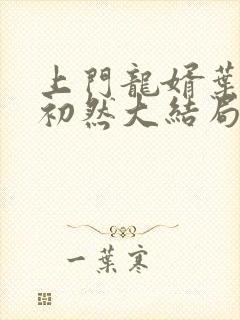 上門龍婿葉
初然大結局
一葉寒